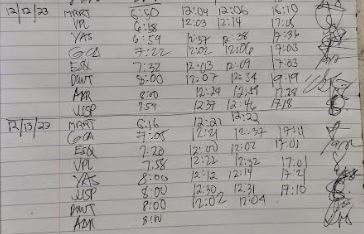 12/12/23 MART 6:50 12:04 12:06 16:10
VPL 6:58 12:03 12:14 17:05
YAS 6:59 12:37 12:38 17:36
GCA 7:22 12:02 12:06 17:03
ESQ 7:32 12:03 12:07 17:03
DWT 8:00 12:07 12:34 19:19
ADR 8:00 12:29 12:49 17:29
JUSP 7:59 12:37 12:46 17:18
12/13/23 MART 6:16 12:21 12:22
GCA 7:05 12:21 12:37 17:11
ESQ 7:20 12:00 12:02 17:01
VPL 7:58 12:22 12:32 17:01
YAS 8:00 12:12 12:14 17:21
JUSP 8:00 12:30 12:31 17:10
DWT 8:00 12:02 12:04
ADR 8:00